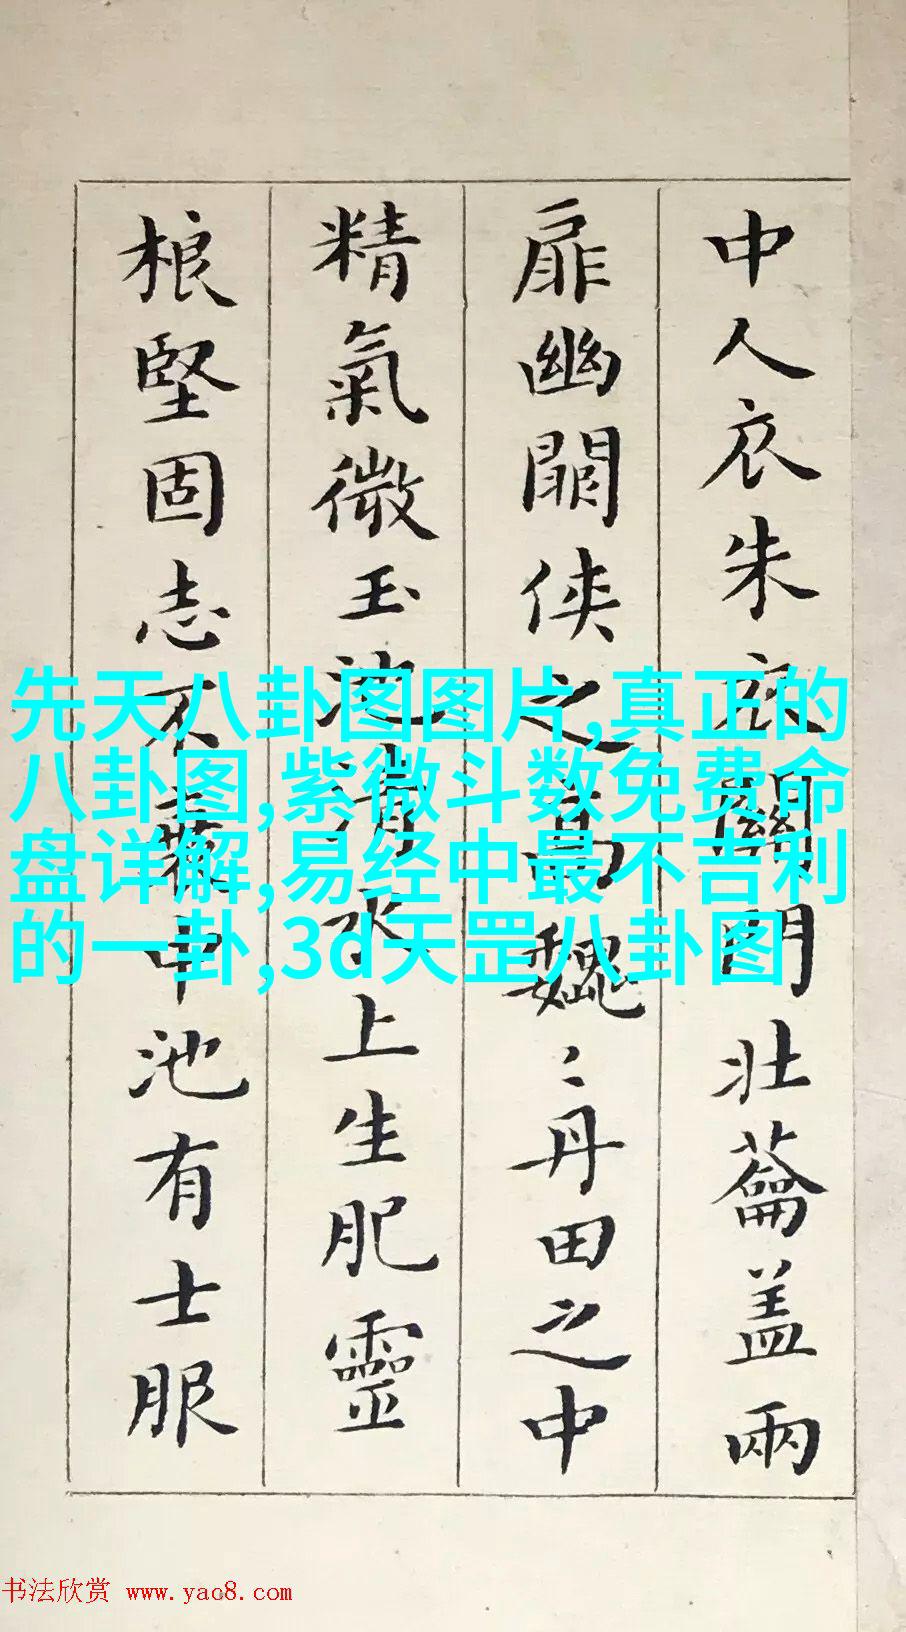 中人衣朱衣關門壯蘥盖兩
扉幽闕俠之高巍〻丹田之中
精氣微玉池清水上生肥靈
根堅固志不衰中池有士服
先天八卦图图片,真正的
八卦图,紫微斗数免费命
盘详解,易经中最不吉利
的一卦,3d天罡八卦图
书法欣赏 www.yac8.com